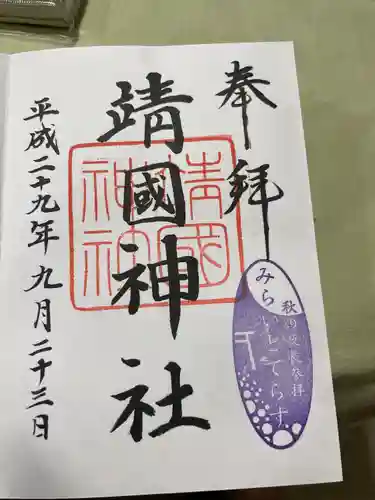 奉拝
みらいとてらす
秋の夜長参拝
靖國神社
靖國
神社
平成二十九年九月二十三日